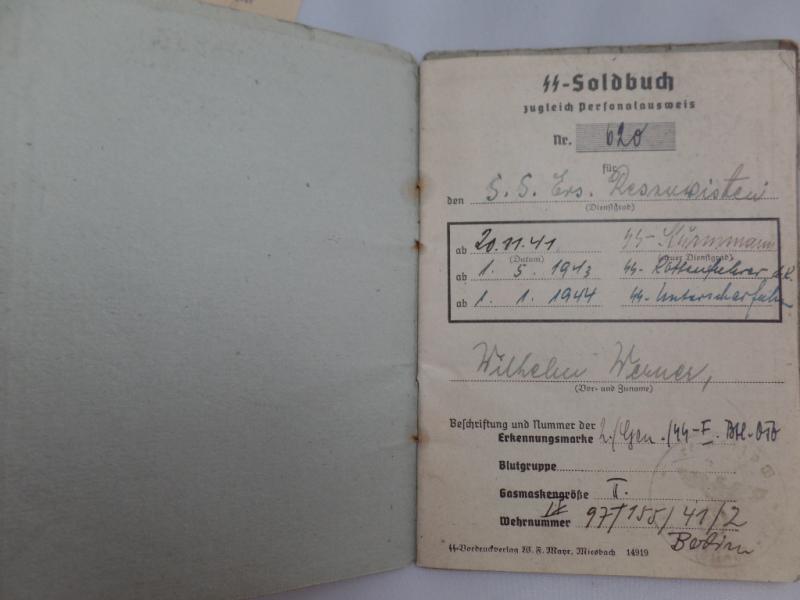 SS-Soldbuch
zugleich Personalausweis
Nr. 620
für
den S.S. Ers.
(Dienstgrad)
ab 20.11.41. SS-Sturmmann
(Datum) (neuer Dienstgrad)
ab 1. 5. 1943 SS-Rottenführer
ab 1. 1. 1944 SS-Unterscharführer
Wilhelm Werner,
(Vor- und Zuname)
Beschriftung und Nummer der
Erkennungsmarke 2./Gen./SS-
Blutgruppe
Gasmaskengröße II.
Wehrnummer 97/155/41/2
SS-Vordruckverlag W. F. Mayr, Miesbach 14919